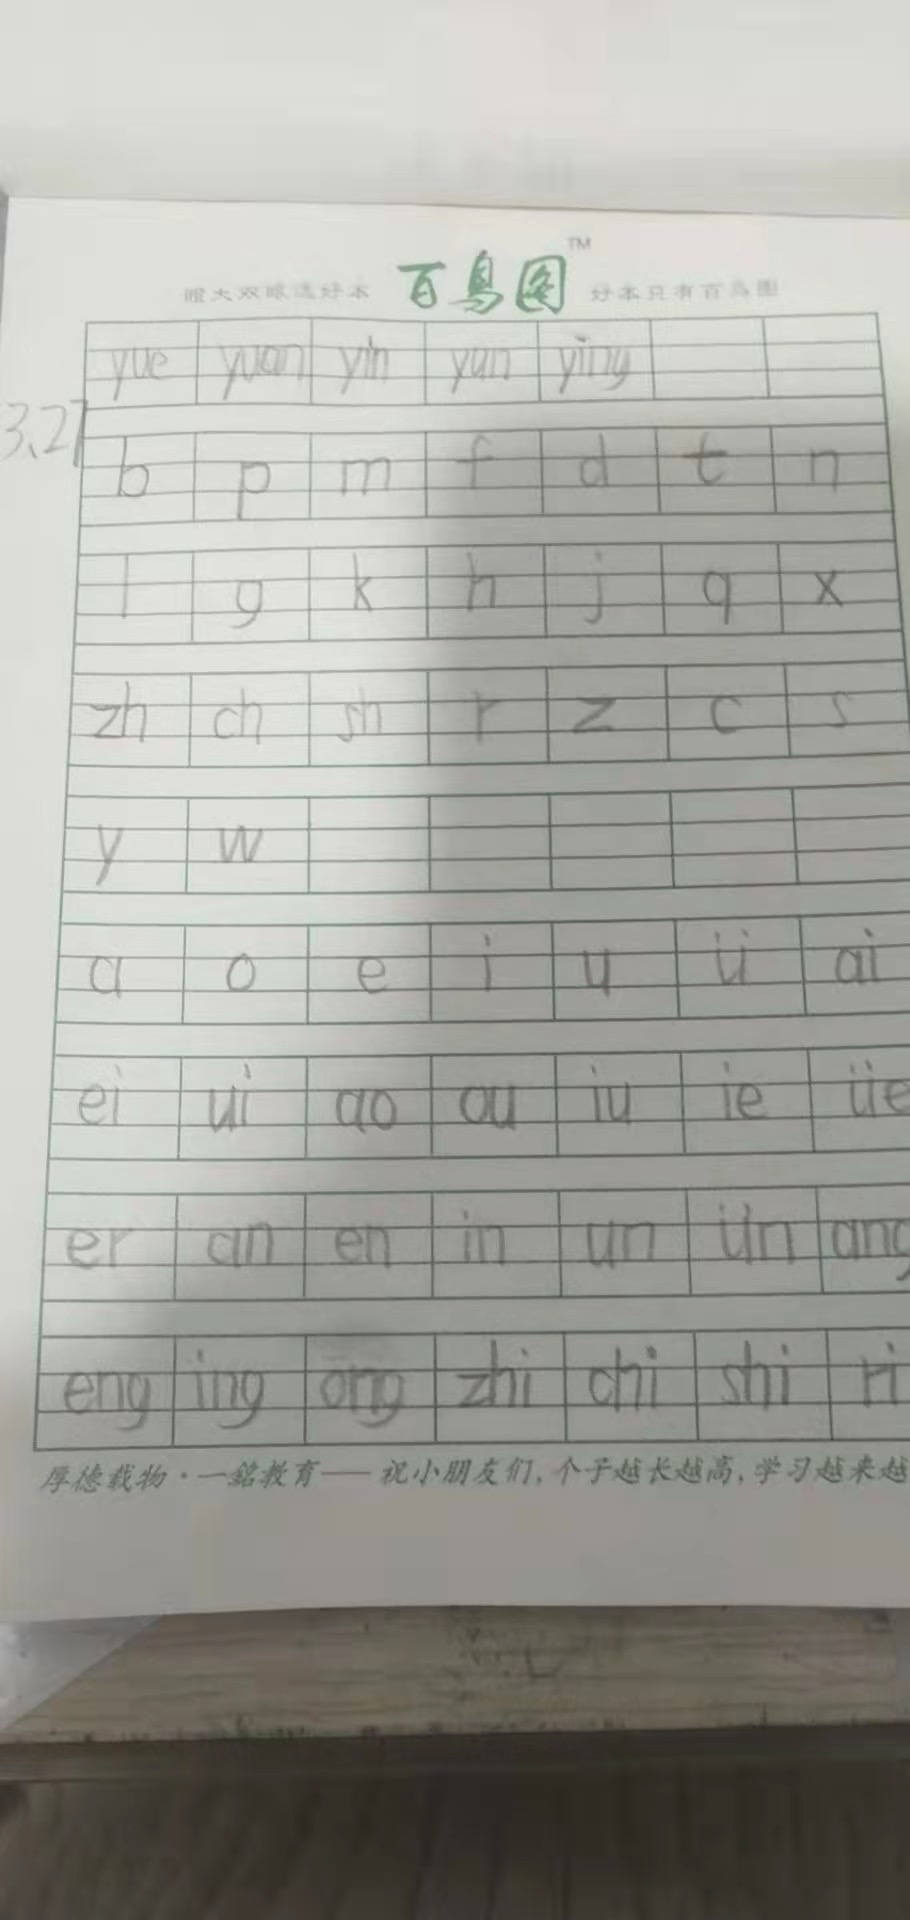 瞪大双眼选好本 百鸟图 TM 好本只有百鸟图
yue yuan yin yun ying
3.27
b p m f d t n
l g k h j q x
zh ch sh r z c s
y w
a o e i u ü ai
ei ui ao ou iu ie üe
er an en in un ün ang
eng ing ong zhi chi shi ri
厚德载物·一銘教育——祝小朋友们,个子越长越高,学习越来越